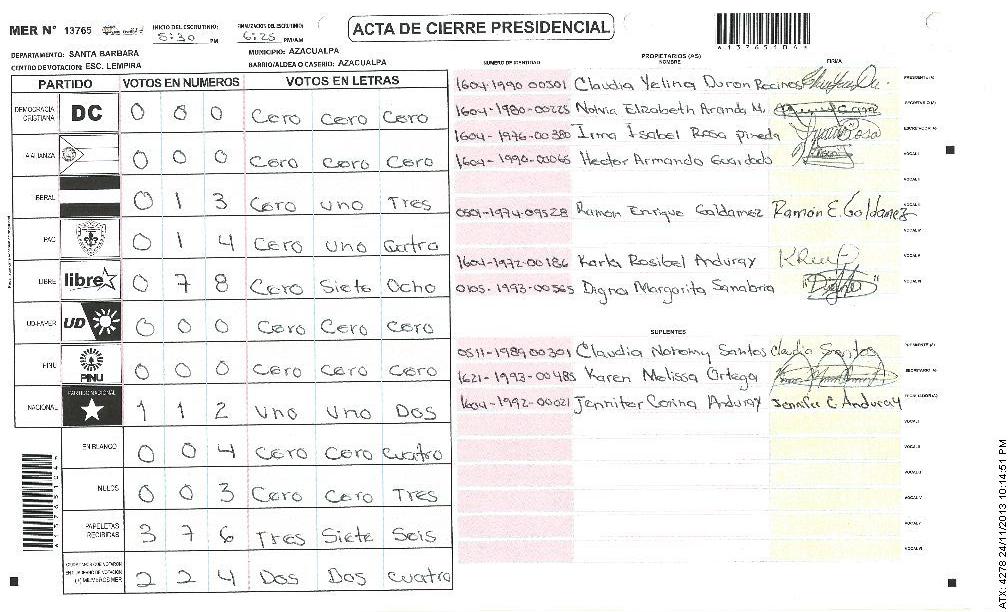 MER Nº 13765 INICIO DEL ESCRUTINIO: 5:30 PM FINALIZACION DEL ESCRUTINIO: 6:25 PM/AM ACTA DE CIERRE PRESIDENCIAL
DEPARTAMENTO: SANTA BARBARA MUNICIPIO: AZACUALPA
CENTRO DE VOTACION: ESC. LEMPIRA BARRIO/ALDEA O CASERIO: AZACUALPA
PARTIDO VOTOS EN NUMEROS VOTOS EN LETRAS
DEMOCRACIA CRISTIANA DC 0 0 0 Cero Cero Cero
ALIANZA 0 0 0 Cero Cero Cero
BERAL 0 1 3 Cero uno Tres
PAC 0 1 4 Cero uno Cuatro
LIBRE libre 0 7 8 Cero Siete Ocho
UD-FAPER UD 0 0 0 Cero Cero Cero
PINU PINU 0 0 0 Cero Cero Cero
NACIONAL PARTIDO NACIONAL 1 1 2 uno uno Dos
EN BLANCO 0 0 4 Cero Cero Cuatro
NULOS 0 0 3 Cero Cero Tres
PAPELETAS RECIBIDAS 3 7 6 Tres Siete Seis
2 2 4 Dos Dos cuatro
NUMERO DE IDENTIDAD PROPIETARIOS (AS) NOMBRE FIRMA
1604-1990-00301 Claudia Yelina Duron Recinos PRESIDENTE (A)
1604-1980-00225 Nolvia Elizabeth Aranda M. SECRETARIO (A)
1604-1976-00380 Irma Isabel Rosa pineda Irma Rosa ESCRUTADOR (A)
1604-1990-00065 Hector Armando Guardado VOCAL I
VOCAL II
0501-1974-09528 Ramon Enrique Galdamez Ramón E. Galdamez VOCAL III
VOCAL IV
1604-1972-00186 Karla Rosibel Anduray VOCAL V
0105-1993-00565 Digna Margarita Sanabria "Digna" VOCAL VI
SUPLENTES
0511-1989-00301 Claudia Notomy Santos Claudia Santos PRESIDENTE (A)
1621-1993-00485 Karen Melissa Ortega SECRETARIO (A)
1604-1992-00021 Jennifer Corina Anduray Jennifer C Anduray ESCRUTADOR (A)
VOCAL I
VOCAL II
VOCAL III
VOCAL IV
VOCAL V
VOCAL VI
ATX: 4278 24/11/2013 10:14:51 PM